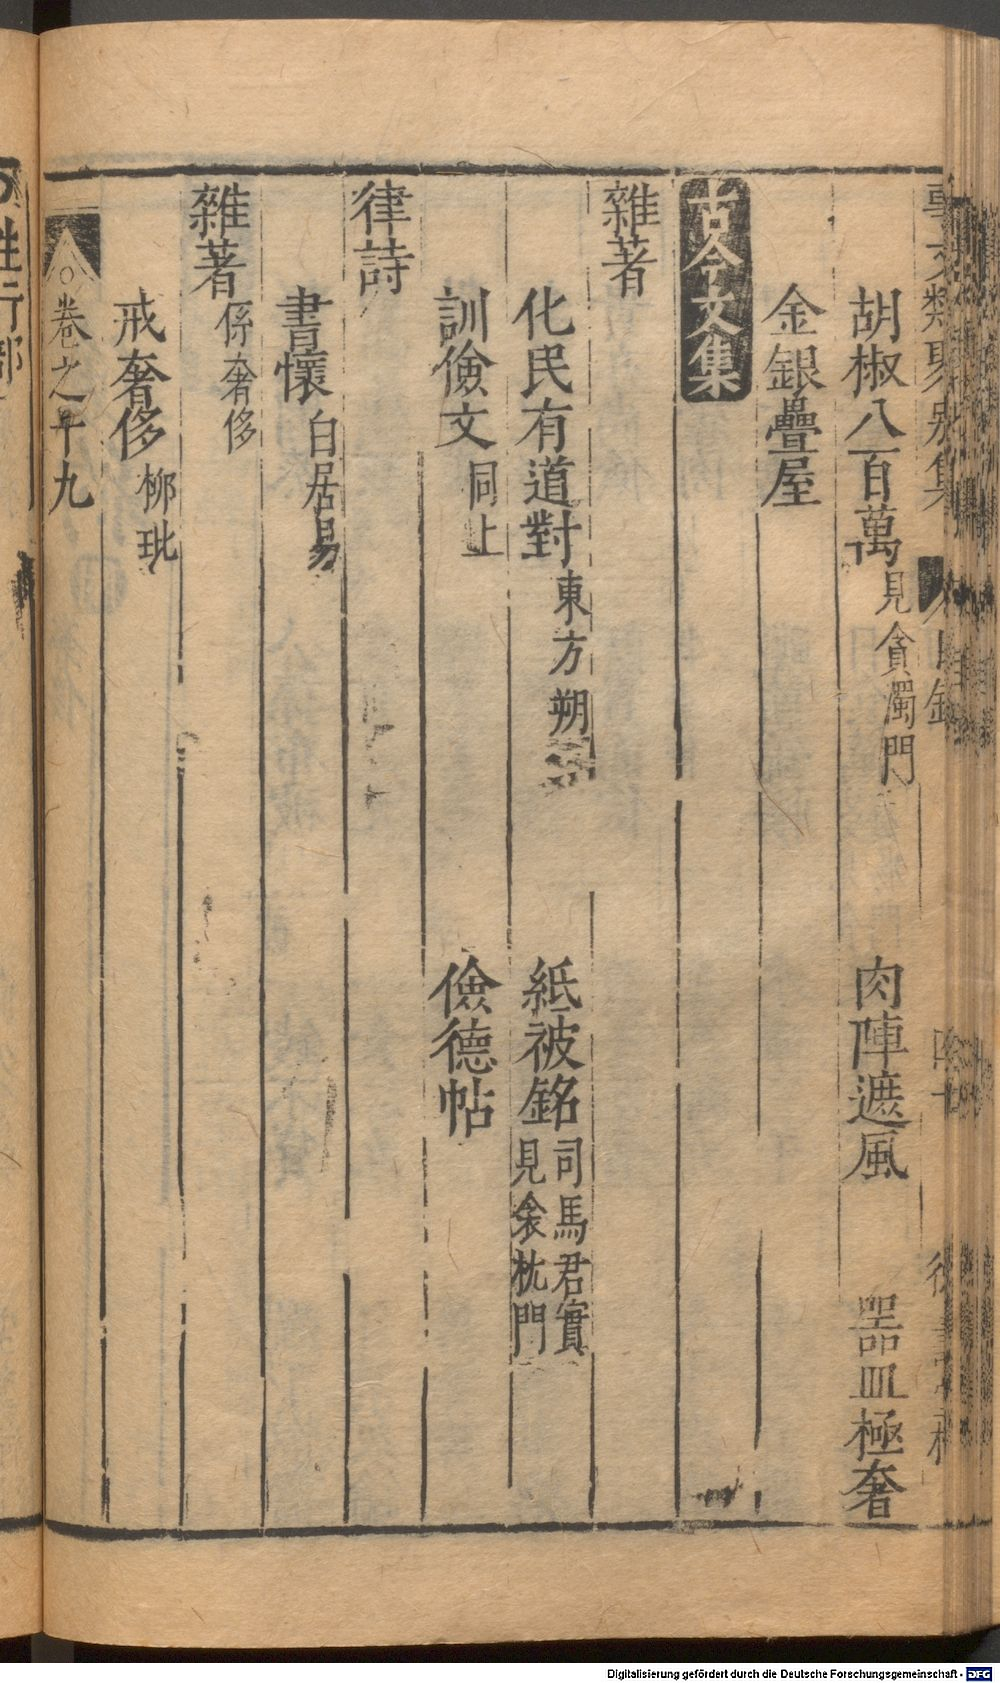 胡椒八百萬 見貪濁門 肉陣遮風 器皿極奢
金銀疊屋
古今文集
雜著
化民有道對 東方朔 紙被銘 司馬君實 見衾枕門
訓儉文 同上 儉德帖
律詩
書懷 白居易
雜著 係奢侈
戒奢侈 柳玭
○卷之十九
性行部
Digitalisierung gefördert durch die Deutsche Forschungsgemeinschaft - DFG